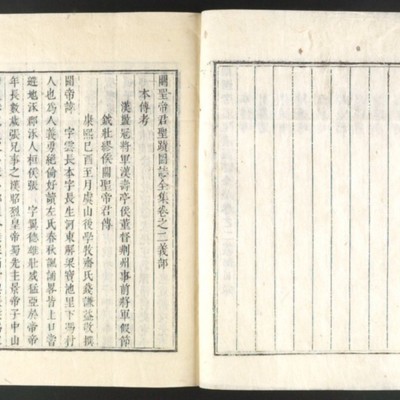 關聖帝君聖蹟圖誌全集卷之二義部
本傳考
漢盪寇將軍漢壽亭侯董督荆州事前將軍假節
鉞壯繆侯關聖帝君傳
康熙巳酉至月虞山後學敎齋氏謙益敬撰
關帝諱 字雲長本字長生河東解梁寶池里下馮村
人也爲人義勇絕倫好讀左氏春秋諷誦畧皆上口嘗
避地涿郡涿人桓侯張 字翼德雄壯威猛亞於帝帝
年長數歲張兄事之漢昭烈皇帝蜀先主景帝子中山